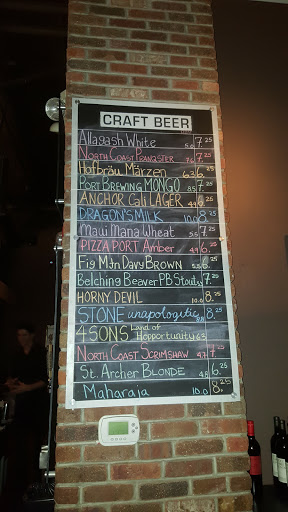 CRAFT BEER
Allagash White 5.0 7.25
North Coast Pranqster 7.6 7.25
Hofbräu Märzen 6.3 6.25
Port Brewing MONGO 8.5 7.25
ANCHOR Cali LAGER 4.9 6.25
DRAGON'S MILK 10.0 8.25
Maui Mana Wheat 5.5 7.25
PIZZA PORT Amber 4.9 6.25
Fig Mtn Davy BROWN 5.5 6.25
Belching Beaver PB Stout 7.25
HORNY DEVIL 10.0 8.25
STONE unapologetic 8.25
4 SONS Land of Hopportunity 6.3
North Coast Scrimshaw 4.7 7.25
St. Archer BLONDE 4.8 6.25
Maharaja 10.0 8.25